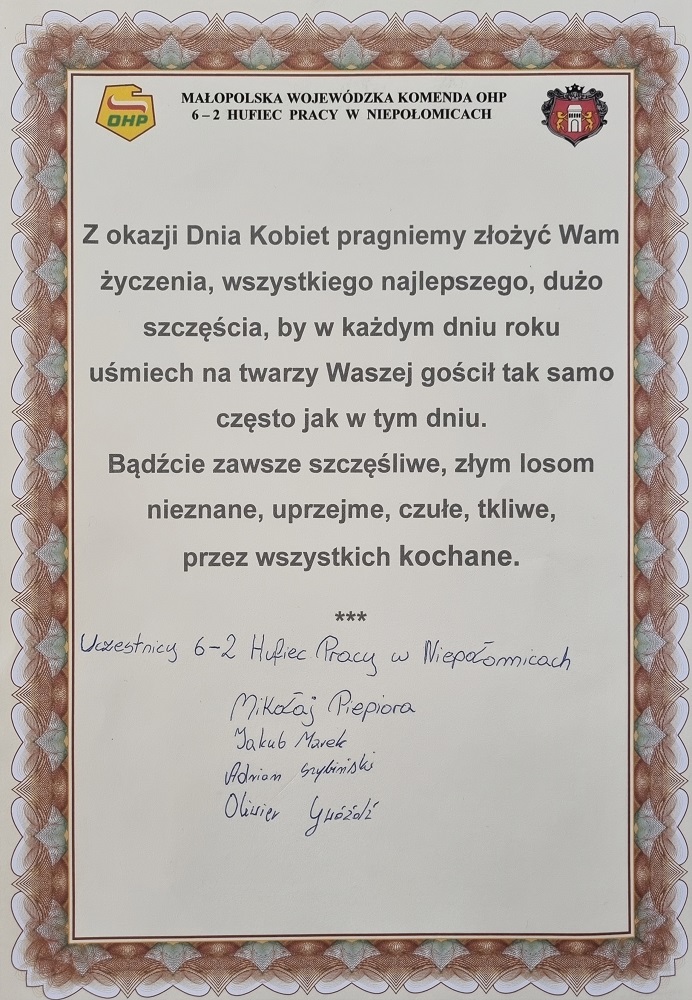 OHP
MAŁOPOLSKA WOJEWÓDZKA KOMENDA OHP
6 – 2 HUFIEC PRACY W NIEPOŁOMICACH
Z okazji Dnia Kobiet pragniemy złożyć Wam
życzenia, wszystkiego najlepszego, dużo
szczęścia, by w każdym dniu roku
uśmiech na twarzy Waszej gościł tak samo
często jak w tym dniu.
Bądźcie zawsze szczęśliwe, złym losom
nieznane, uprzejme, czułe, tkliwe,
przez wszystkich kochane.
***
Uczestnicy 6-2 Hufiec Pracy w Niepołomicach
Mikołaj Piepiora
Jakub Marek
Adrian
Oliwier Gwóźdź